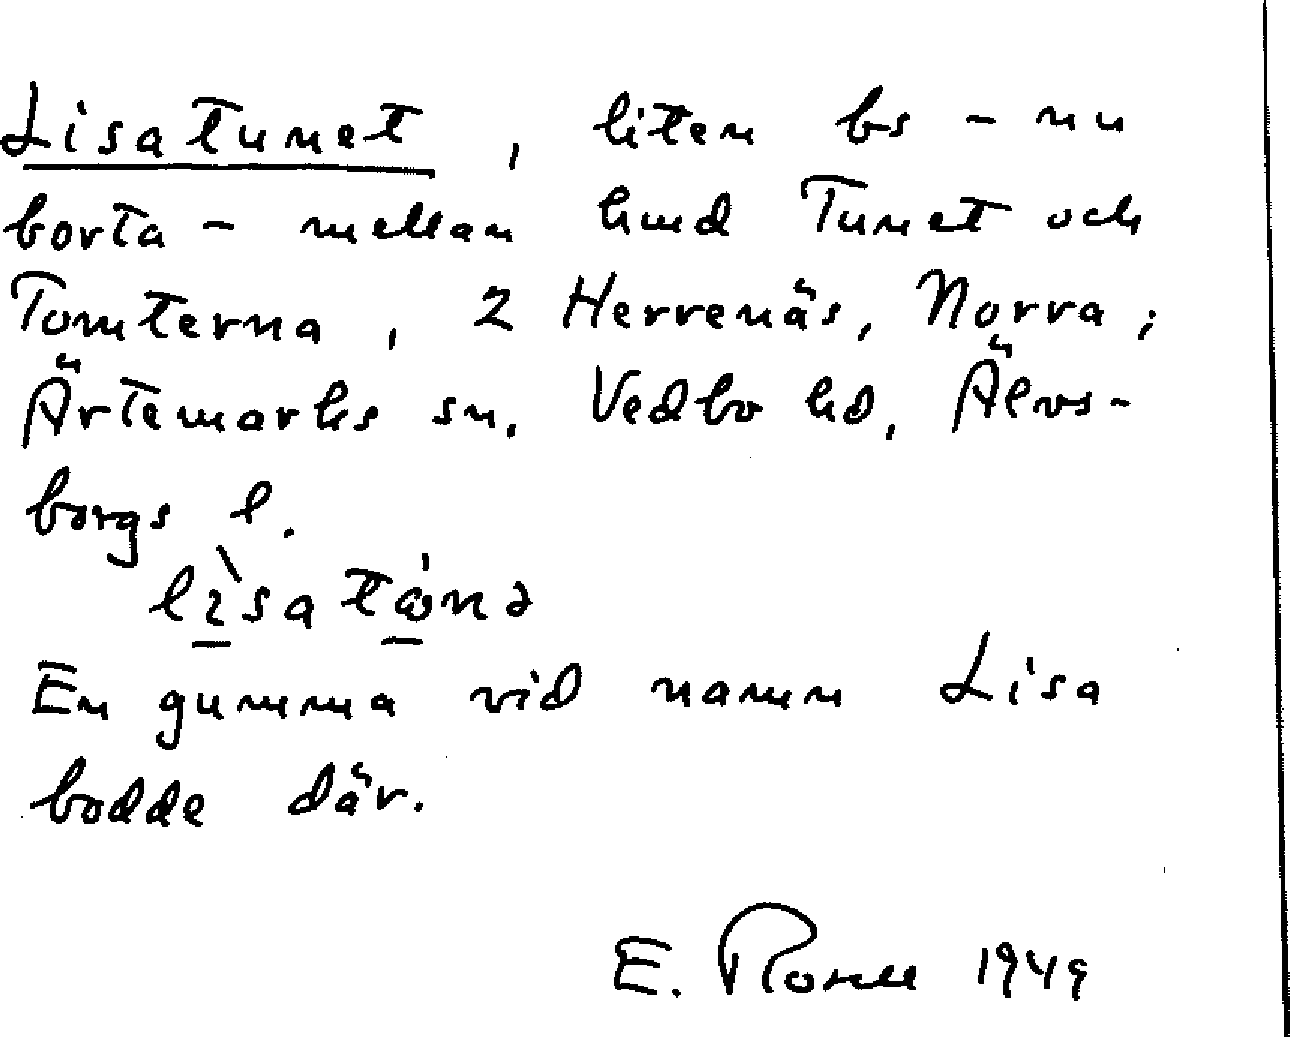 Lisatunet, liten bs - nu
borta - mellan hmd Tunet och
Tomterna, 2 Herrenäs, Norra;
Ärtemarks sn, Vedbo hd, Älvs-
borgs l.
En gumma vid namn Lisa
bodde där.
E. Rosell 1949